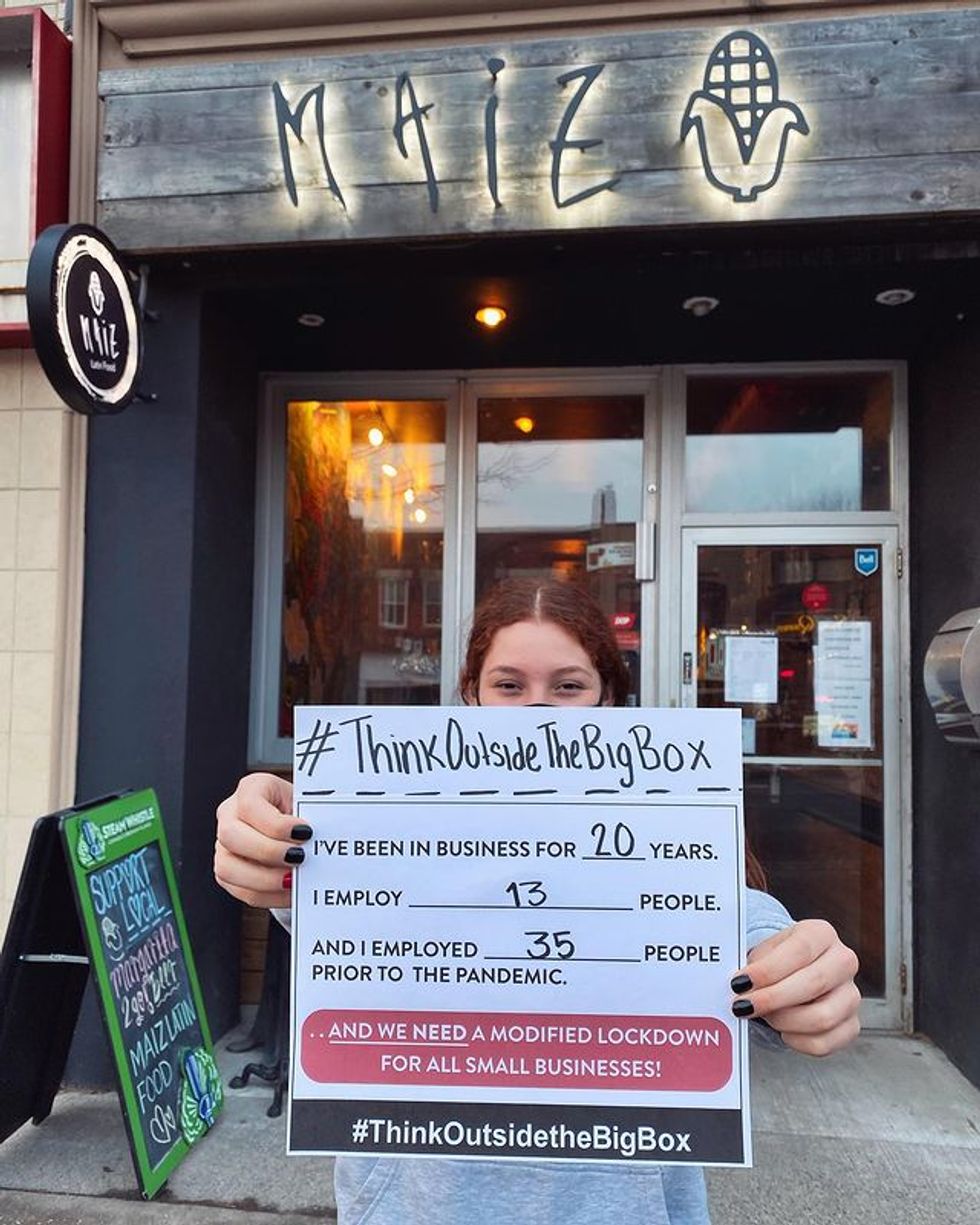 MAiZ
MAiZ
Latin Food
Bell
#ThinkOutsideTheBigBox
I'VE BEEN IN BUSINESS FOR 20 YEARS.
I EMPLOY 13 PEOPLE.
AND I EMPLOYED 35 PEOPLE
PRIOR TO THE PANDEMIC.
..AND WE NEED A MODIFIED LOCKDOWN
FOR ALL SMALL BUSINESSES!
#ThinkOutsidetheBigBox
STEAM WHISTLE
SUPPORT
LOCAL
margarita
MAIZ LATIN
FOOD